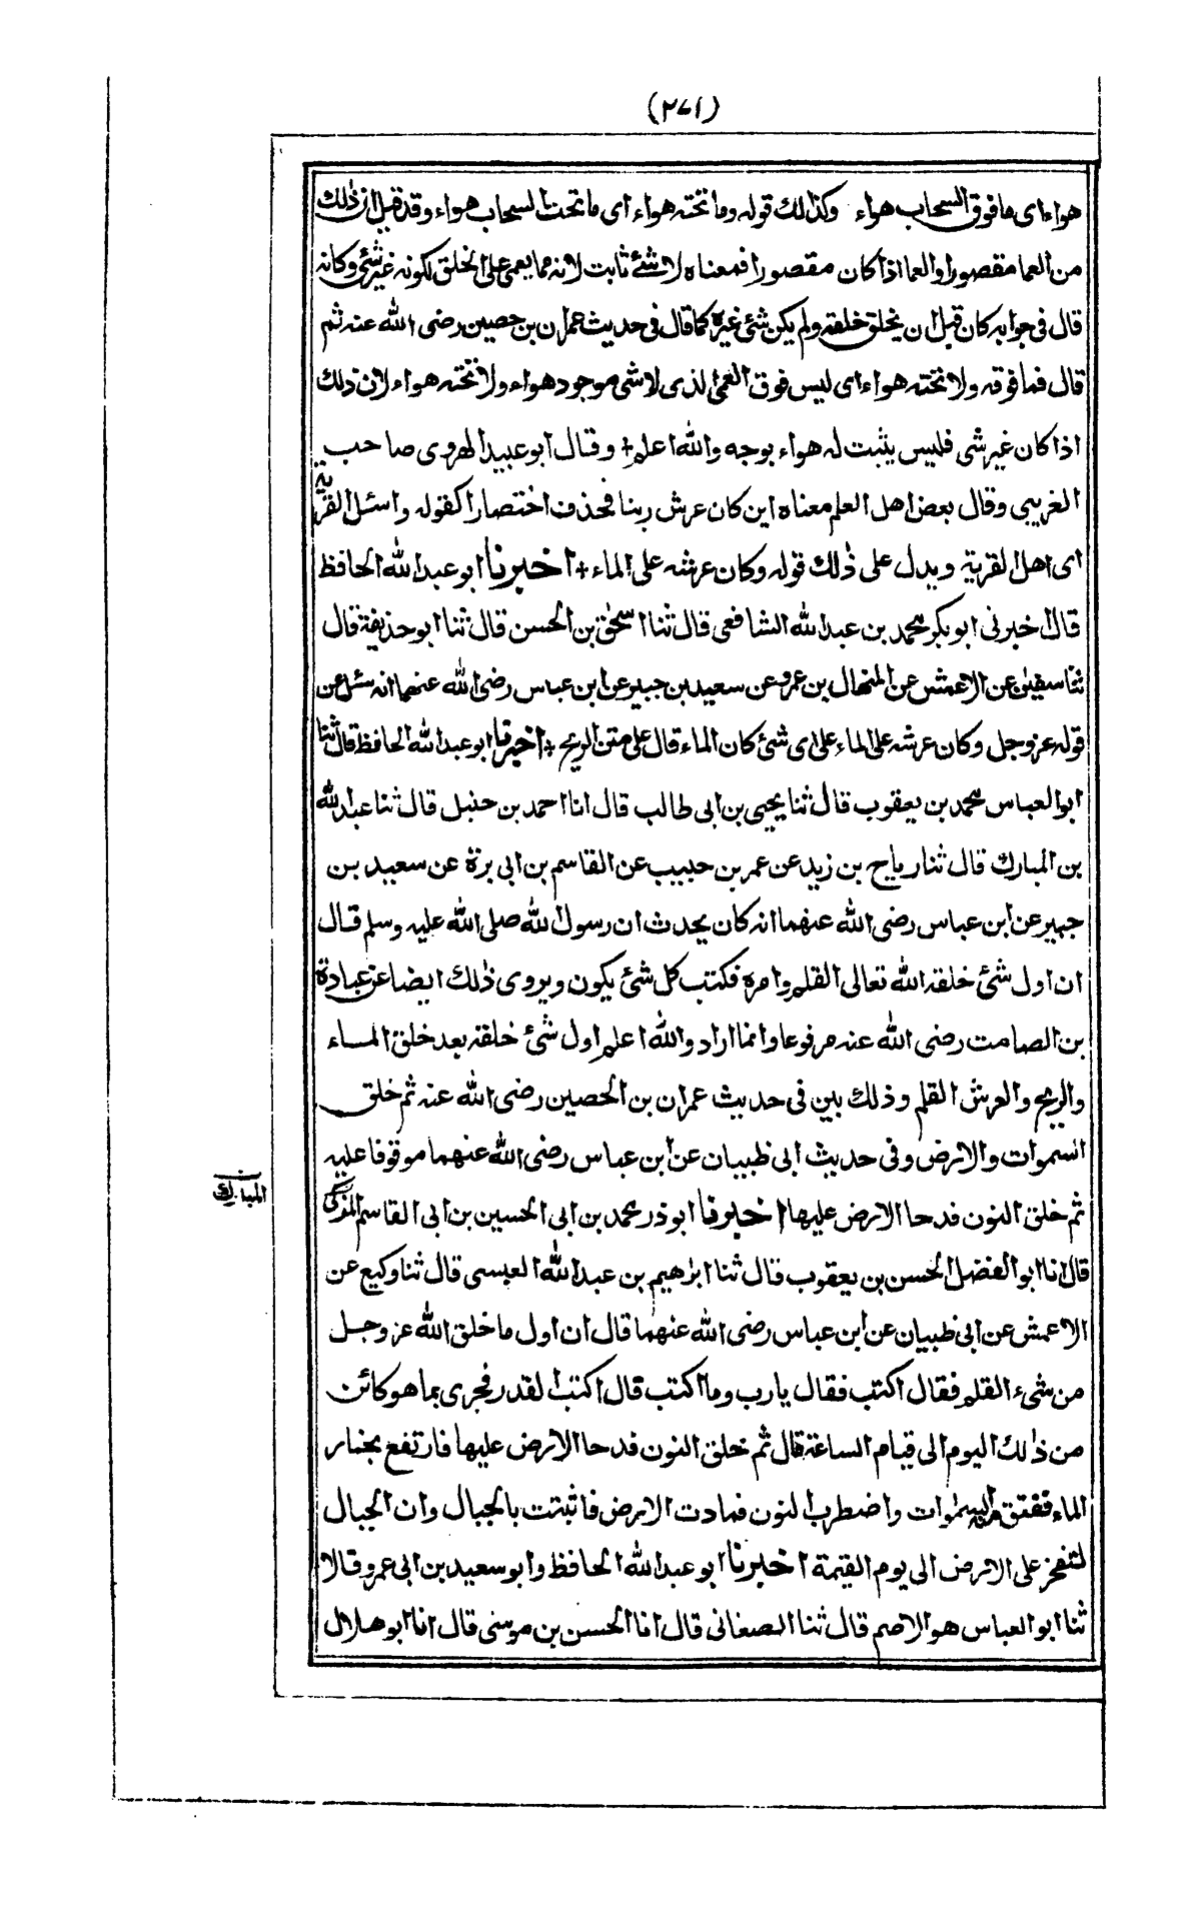 (٢٧١)
هواء اى ما فوق السحاب هواء وكذالك قوله وما تحته هواء اى ما تحت السحاب هواء وقد قيل ان ذلك
من العما مقصورا والعما اذا كان مقصورا فمعناه لا شئ ثابت لانه مما يعمى على الخلق لكونه غير شئ وكانه
قال فى جوابه كان قبل ان يخلق خلقه ولم يكن شئ غيره كما قال فى حديث عمران بن حصين رضى الله عنه ثم
قال فما فوقه ولا تحته هواء اى ليس فوق العمى الذى لا شى موجود هواء ولا تحته هواء لان ذلك
اذا كان غير شى فليس يثبت له هواء بوجه والله اعلم + وقال ابو عبيد الهروى صاحب
الغريبى وقال بعض اهل العلم معناه اين كان عرش ربنا فحذف اختصارا كقوله واسئل القرية
اى اهل القرية ويدل على ذلك قوله وكان عرشه على الماء + اخبرنا ابو عبد الله الحافظ
قال اخبرنى ابو بكر محمد بن عبد الله الشافعى قال ثنا اسحق بن الحسن قال ثنا ابو حذيفة قال
ثنا سفين عن الاعمش عن المنهال بن عمرو عن سعيد بن جبير عن ابن عباس رضى الله عنهما انه سئل عن
قوله عز وجل وكان عرشه على الماء على اى شئ كان الماء قال على متن الريح + اخبرنا ابو عبد الله الحافظ قال ثنا
ابو العباس محمد بن يعقوب قال ثنا يحيى بن ابى طالب قال انا احمد بن حنبل قال ثنا عبد الله
بن المبارك قال ثنا رباح بن زيد عن عمر بن حبيب عن القاسم بن ابى بزة عن سعيد بن
جبير عن ابن عباس رضى الله عنهما انه كان يحدث ان رسول الله صلى الله عليه وسلم قال
ان اول شئ خلقه الله تعالى القلم وامره فكتب كل شئ يكون ويروى ذلك ايضا عن عبادة
بن الصامت رضى الله عنه مرفوعا وانما اراد والله اعلم اول شئ خلقه بعد خلق الماء
والريح والعرش القلم وذلك بين فى حديث عمران بن الحصين رضى الله عنه ثم خلق
السموات والارض وفى حديث ابى ظبيان عن ابن عباس رضى الله عنهما موقوفا عليه
ثم خلق النون فدحا الارض عليها اخبرنا ابو ذر محمد بن ابى الحسين بن ابى القاسم المزكى
قال انا ابو الفضل الحسن بن يعقوب قال ثنا ابرهيم بن عبد الله العبسى قال ثنا وكيع عن
الاعمش عن ابى ظبيان عن ابن عباس رضى الله عنهما قال ان اول ما خلق الله عز وجل
من شىء القلم فقال اكتب فقال يا رب وما اكتب قال اكتب القدر فجرى بما هو كائن
من ذلك اليوم الى قيام الساعة قال ثم خلق النون فدحا الارض عليها فارتفع بخار
الماء ففتق منه السموات واضطرب النون فمادت الارض فاثبتت بالجبال وان الجبال
لتفخر على الارض الى يوم القيمة اخبرنا ابو عبد الله الحافظ وابو سعيد بن ابى عمرو قالا
ثنا ابو العباس هو الاصم قال ثنا الصغانى قال انا الحسن بن موسى قال انا ابو هلال